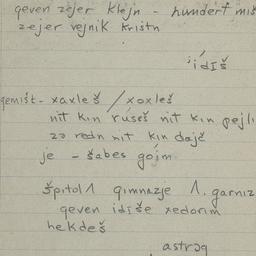 geven zejer klejn - hundert miš
zejer vejnik kristn
'idiš
gemišt - xaxleš / xoxleš
nit kin ruseš nit kin pejli
zə redn nit kin dajč
je - šabes gojm
špitol 1 gimnazje 1. garniz
geven idiše xedorim
hekdeš
astrəg